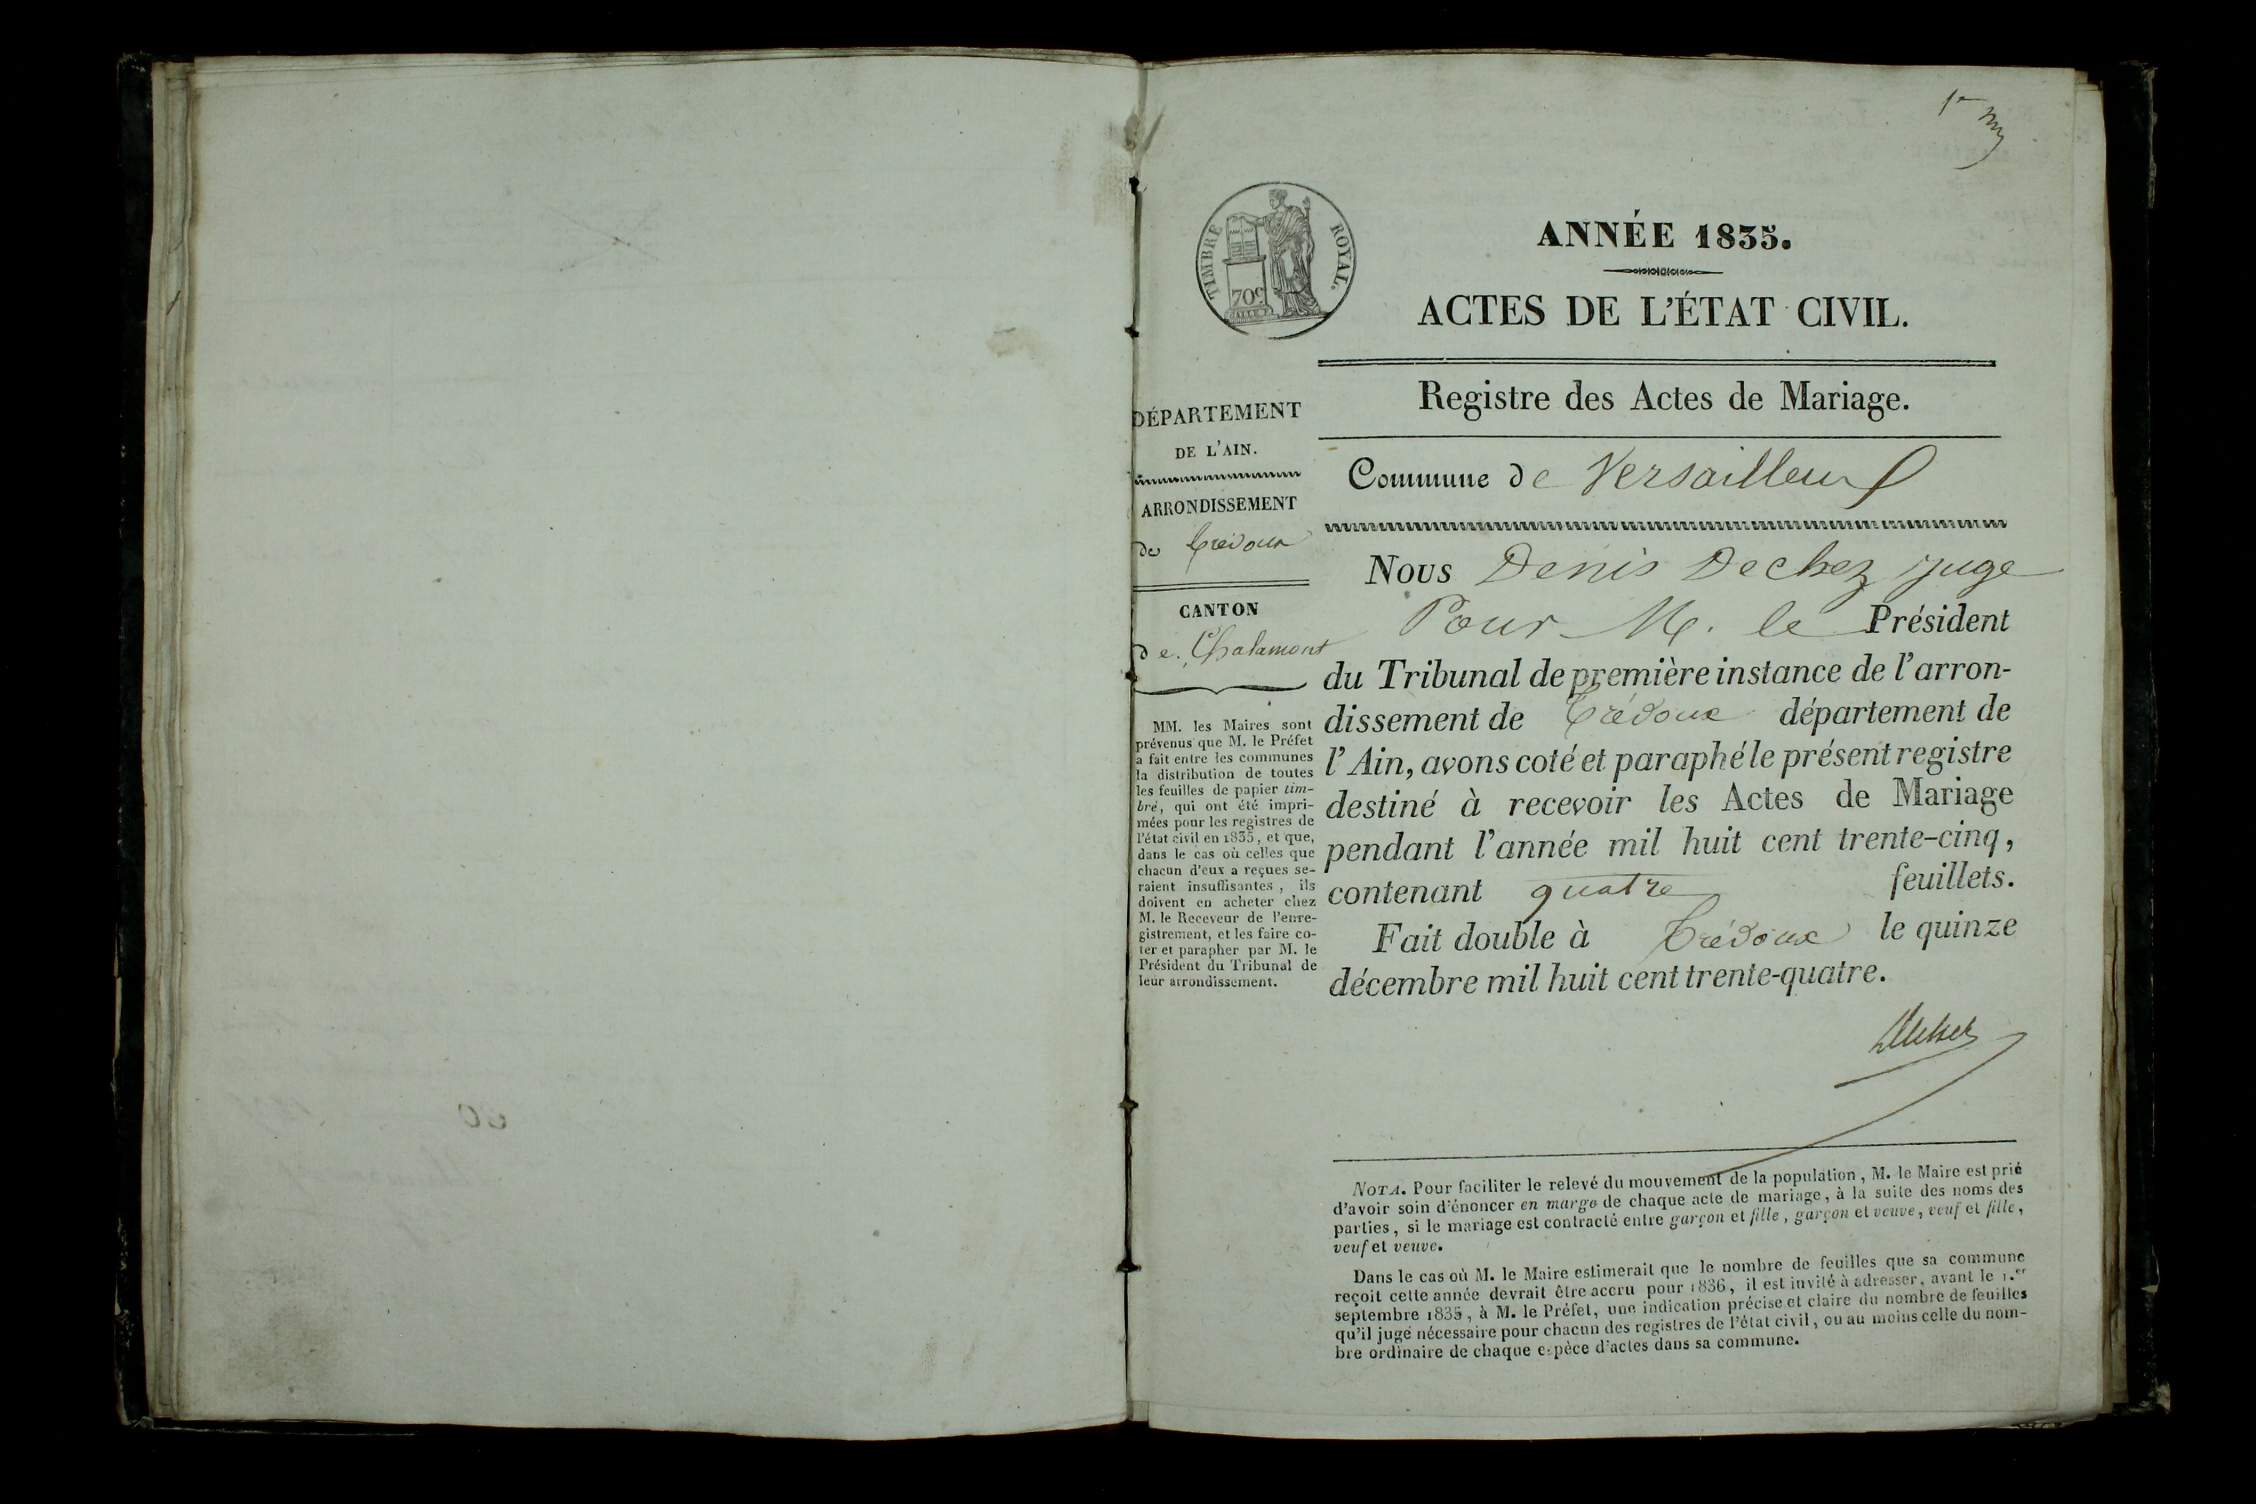 1er
TIMBRE ROYAL.
70c
ANNÉE 1835.
ACTES DE L'ÉTAT CIVIL.
Registre des Actes de Mariage.
Commune de Versailleux
DÉPARTEMENT
DE L'AIN.
ARRONDISSEMENT
de Trévoux
CANTON
de Chalamont
MM. les Maires sont
prévenus que M. le Préfet
a fait entre les communes
la distribution de toutes
les feuilles de papier tim-
bré, qui ont été impri-
mées pour les registres de
l'état civil en 1835, et que,
dans le cas où celles que
chacun d'eux a reçues se-
raient insuffisantes, ils
doivent en acheter chez
M. le Receveur de l'enre-
gistrement, et les faire co-
ter et parapher par M. le
Président du Tribunal de
leur arrondissement.
Nous Denis Dechez juge
Pour M. le Président
du Tribunal de première instance de l'arron-
dissement de Trévoux département de
l'Ain, avons coté et paraphé le présent registre
destiné à recevoir les Actes de Mariage
pendant l'année mil huit cent trente-cinq,
contenant quatre feuillets.
Fait double à Trévoux le quinze
décembre mil huit cent trente-quatre.
NOTA. Pour faciliter le relevé du mouvement de la population, M. le Maire est prié
d'avoir soin d'énoncer en marge de chaque acte de mariage, à la suite des noms des
parties, si le mariage est contracté entre garçon et fille, garçon et veuve, veuf et fille,
veuf et veuve.
Dans le cas où M. le Maire estimerait que le nombre de feuilles que sa commune
reçoit cette année devrait être accru pour 1836, il est invité à adresser, avant le 1.er
septembre 1835, à M. le Préfet, une indication précise et claire du nombre de feuilles
qu'il juge nécessaire pour chacun des registres de l'état civil, ou au moins celle du nom-
bre ordinaire de chaque espèce d'actes dans sa commune.